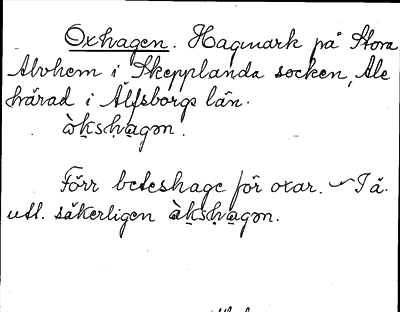 Oxhagen. Hagmark på Stora
Alvhem i Skepplanda socken, Ale
härad i Älfsborgs län.
àkshagən.
Förr beteshage för oxar. – I ä.
utl. säkerligen àkshagən.